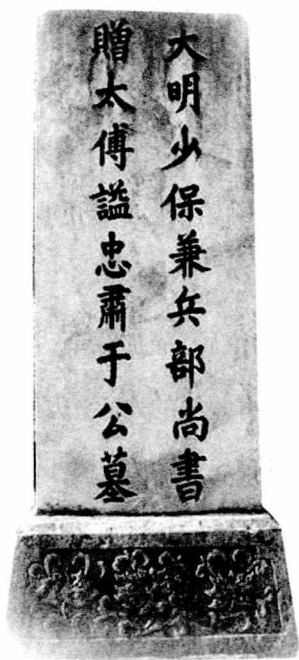 大明少保兼兵部尚書
贈太傅謚忠肅于公墓